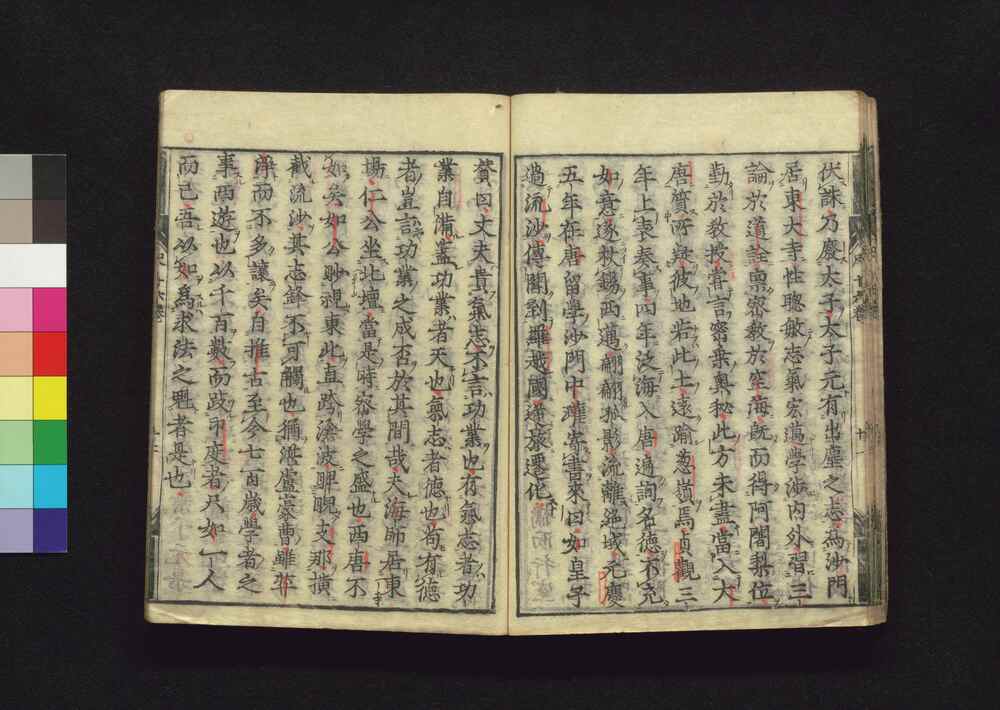 伏誅乃廢太子太子元有出塵之志爲沙門
居東大寺性聰敏志氣宏邁學渉内外習三
論於道詮禀密教於空海既而得阿闍梨位
勤於教授甞言密乘奥秘此方未盡當入大
唐質所疑彼地若此土遠踰葱嶺焉貞觀三
年上表奏事四年泛海入唐遍詢名德不究
如意遂杖錫西邁翩翩孤影流離絶域元慶
五年在唐留學沙門中瓘寄書來曰如皇子
過流沙傳聞到羅越國逆旅遷化
贊曰丈夫貴氣志不言功業也有氣志者功
業自備蓋功業者天也氣志者德也苟有德
者豈言功業之成否於其間哉夫海師居東
場仁公坐北壇當是時密學之盛也西唐不
如矣如公眇視東此直跨滄波睥睨支那横
截流沙其志鋒不可觸也
淨而不多讓矣自推古至今七百歳學者之
事西遊也以千百數而跂印度者只如一人
而已吾以如爲求法之魁者是也